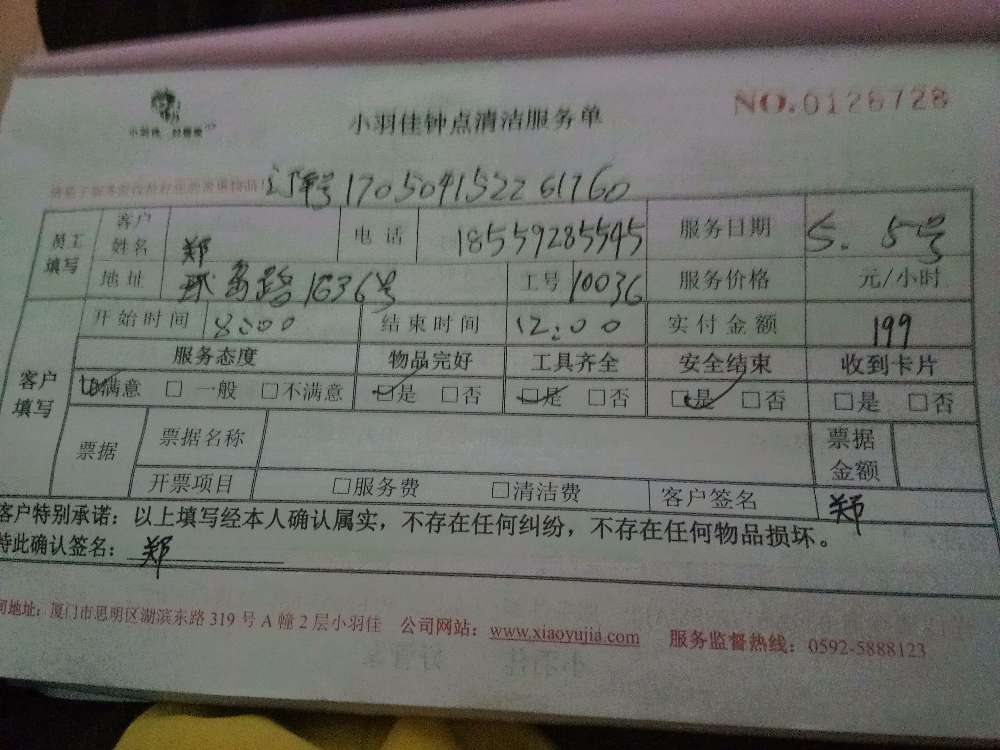 小羽佳 好管家
小羽佳钟点清洁服务单
NO.0126728
订单号170504152261760
员工填写 客户姓名 郑 电话 18559285545 服务日期 5. 5号
地址 环岛路1636号 工号 10036 服务价格 元/小时
客户填写 开始时间 8:00 结束时间 12:00 实付金额 199
服务态度 物品完好 工具齐全 安全结束 收到卡片
☑满意 □ 一般 □不满意 ☑是 □否 ☑是 □否 ☑是 □否 □是 □否
票据 票据名称 票据金额
开票项目 □服务费 □清洁费 客户签名 郑
客户特别承诺：以上填写经本人确认属实，不存在任何纠纷，不存在任何物品损坏。
特此确认签名： 郑
司地址：厦门市思明区湖滨东路 319 号 A 幢 2 层小羽佳 公司网站：www.xiaoyujia.com 服务监督热线：0592-5888123